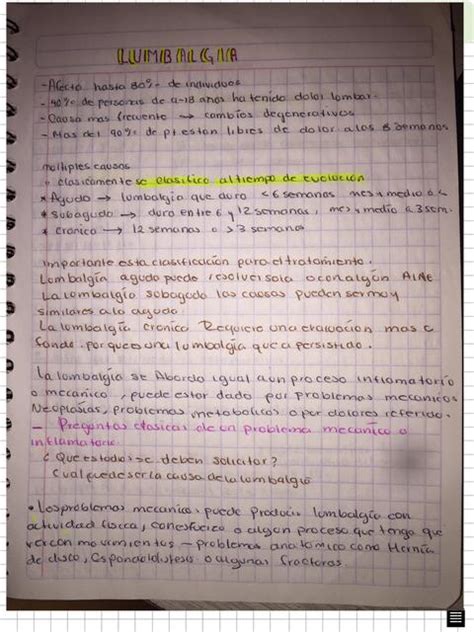 LUMBALGIA
- Afecta hasta 80% de individuos
- 40% de personas de 9-18 años ha tenido dolor lombar.
- Causa mas frecuente → cambios degenerativos
- Mas del 90% de pt estan libres de dolor a los 8 semanas
multiples causas
• clasicamente se clasifica al tiempo de evolución
* Agudo → lumbalgia que dura < 6 semanas, mes y medio o <
* subagudo → dura entre 6 y 12 semanas, mes y medio a 3 sem.
* cronico → 12 semanas o > 3 semanas
importante esta clasificación para el tratamiento.
Lombalgía aguda puede resolver sola o con algún AINE
La lombalgia subaguda las causas pueden ser muy
similares a la aguda
La lombalgia cronica Requiere una evaluacion mas a
fondo. porque es una lumbalgía que a persistido.
La lombalgia se Aborda igual a un proceso inflamatorio
o mecanico, puede estar dado por problemas mecanicos
Neoplasias, problemas metabolicos o por dolores referido.
— Preguntas clasicas de un problema mecanico o
inflamatorio
¿Que estudios se deben solicitar?
Cual puede ser la causa de la lombalgia
• Los problemas mecanicos, puede producir lumbalgía con
actividad física, con esfuerzo o algun proceso que tenga que
ver con movimientos — problemas anatomico como Hernia
de disco, Espondilolistesis o algunas fracturas.